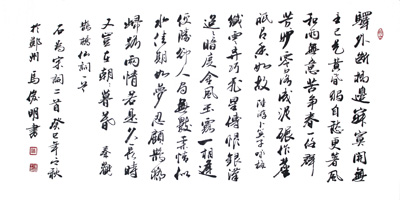 驛外斷橋邊寂寞開無
主已是黃昏獨自愁更著風
和雨無意苦争春一任群
芳妒零落成泥碾作塵
祇有香如故 陸游卜算子咏梅
纖雲弄巧飛星傳恨銀漢
迢迢暗度金風玉露一相逢
便勝却人間無數柔情似
水佳期如夢忍顧鵲橋
歸路兩情若是久長時
又豈在朝朝暮暮 秦觀
鵲橋仙詞一首
右为宋詞二首癸巳年之秋
於鄭州馬俊明書